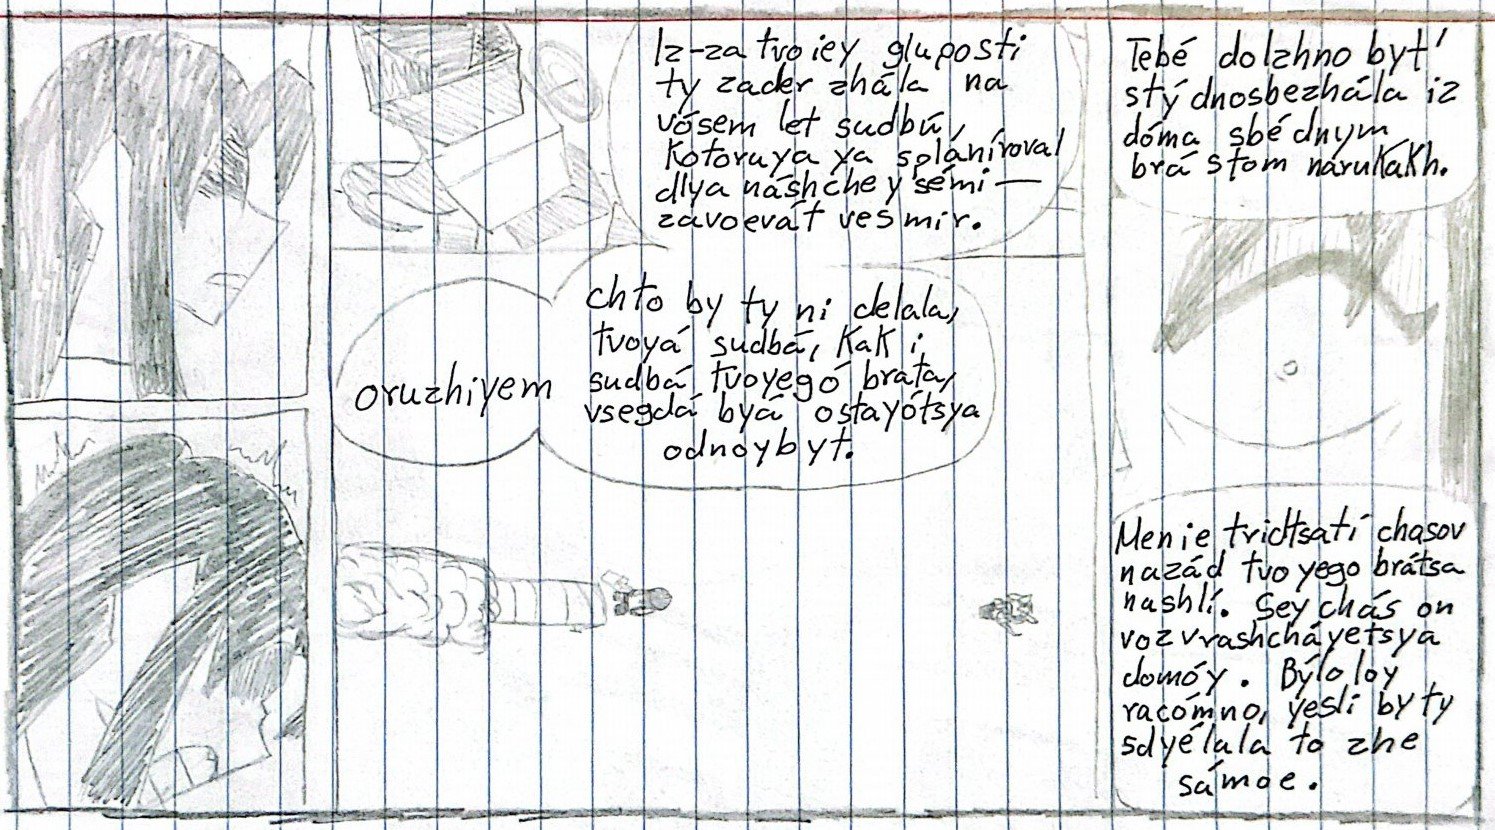 Iz-za tvoiey gluposti
ty zaderzhála na
vósem let sudbú,
kotoruya ya splaníroval
dlya náshchey sémi—
zavoevát vesmir.
chto by ty ni delala,
tvoyá sudbá, kak i
sudbá tvoyegó brata,
vsegdá byá ostayótsya
odnoybyt.
oruzhiyem
Tebé dolzhno byt'
stýdnosbezhála iz
dóma sbédnym
brástom narukakh.
Menie tridtsatí chasov
nazád tvoyego brátsa
nashlí. Seychás on
vozvrashcháyetsya
domóy. Býloloy
racómno, yesli by ty
sdyélala to zhe
sámoe.